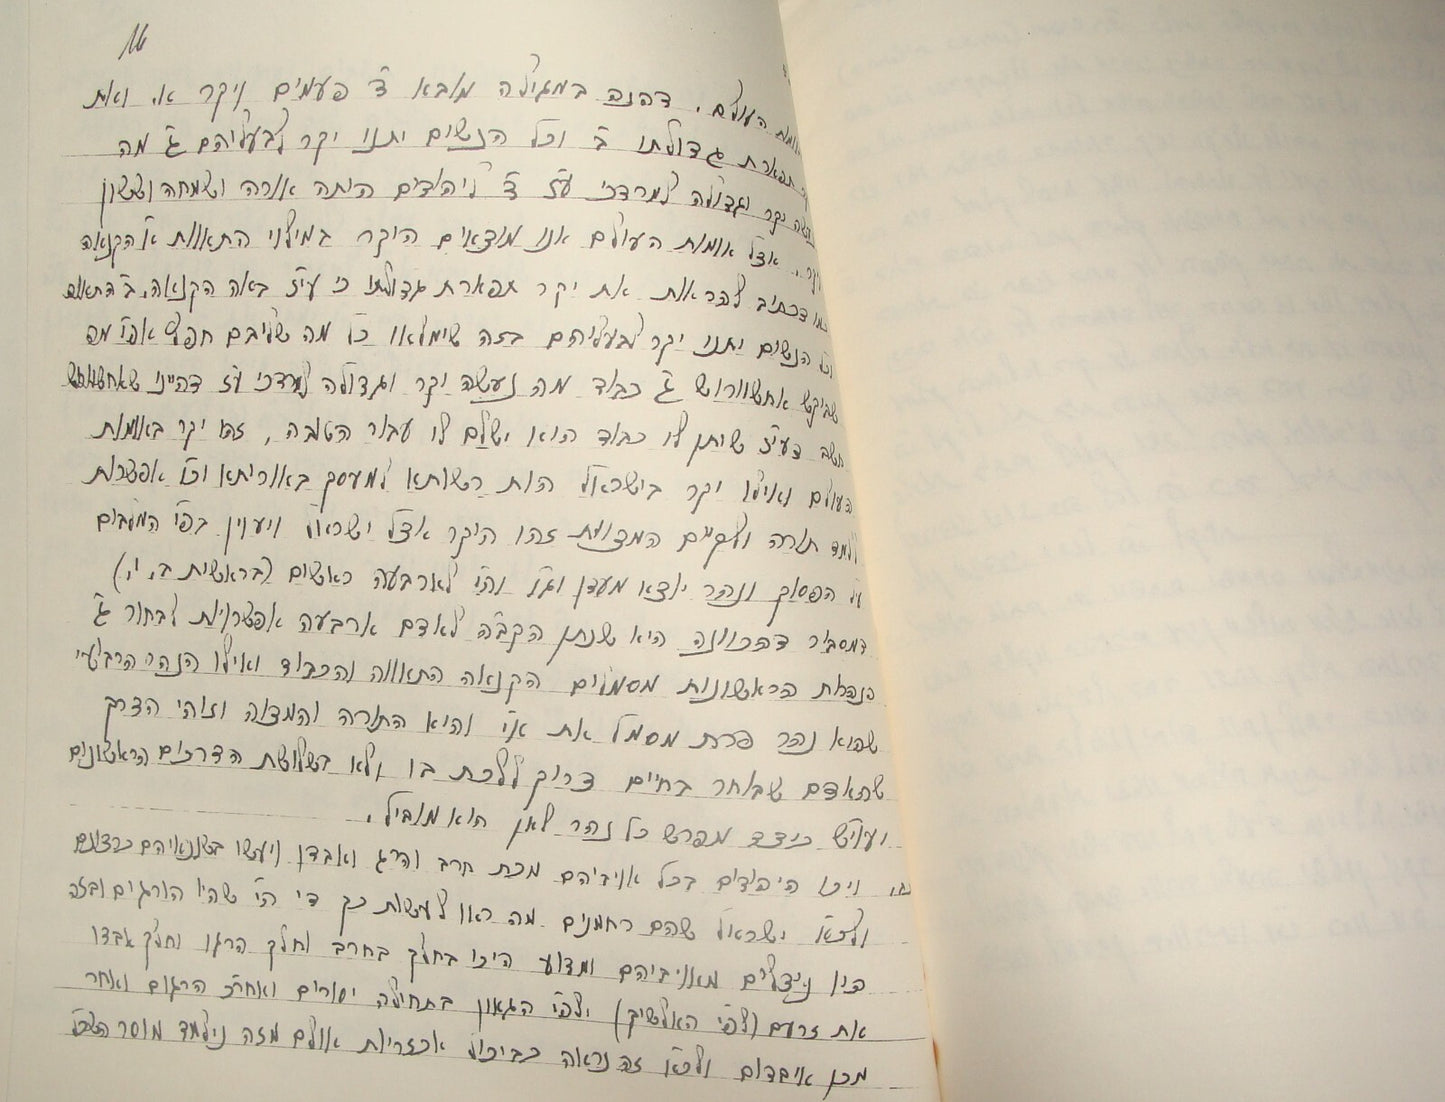 אומות העולם. דהנה במגילה מובא ד' פעמים ויקר א. ואת
תפארת גדולתו ב' וכל הנשים יתנו יקר לבעליהם ג' מה
יקר וגדולה למרדכי ע"ז ד' ליהודים היתה אורה ושמחה וששון
ויקר. אצל אומות העולם אנו מוצאים היקר במילוי התאוות א' הקנאה
כמו דכתיב להראות את יקר תפארת גדולתו כי עי"ז באה הקנאה. ב' התאוה
וכל הנשים יתנו יקר לבעליהם בזה שימלאו כל מה שליבם חפץ אפי' מה
שביקש אחשוורוש ג' כבוד מה נעשה יקר וגדולה למרדכי ע"ז דהיינו שאחשורוש
חשב דעי"ז שיתן לו כבוד הוא ישלם לו עבור הטובה, זהו יקר באומות
העולם ואילו יקר בישראל הות רשותא למעסק באוריתא וכו' אפשרות
ללמד תורה ולקיים המצוות זהו היקר אצל ישראל ויעוין בפי' המלבים
על הפסוק ונהר יוצא מעדן וגו' והי' לארבעה ראשים (בראשית ב, י,)
דמסביר דהכוונה היא שנתן הקב"ה לאדם ארבעה אפשריות לבחור ג'
הנהרות הראשונות מסמלים הקנאה התאווה והכבוד ואילו הנהר הרביעי
שהוא נהר פרת מסמל את א"י והיא התורה והמצוה וזוהי הדרך
שהאדם שבוחר בחיים צריך ללכת בו ולא בשלושת הדרכים הראשונים
ועוי"ש כיצד מפרש כל נהר לאן הוא מוביל.
ויכו היהודים בכל אויביהם מכת חרב והרג ואבדן ויעשו בשונאיהם כרצונם
ולכאו' ישראל שהם רחמנים מה ראו לעשות כך די הי' שהיו הורגים ובזה
היו ניצלים מאויביהם ומדוע היכו בחלק בחרב וחלק הרגו וחלק אבדו
את זרעם (לפי' האלשיך) ולפי' הגאון בתחילה יסורים ואח"כ הרגום ואחר
מכן איבדום ולכאו' זה נראה כביכול אכזריות אולם מזה נילמד מוסר השכל